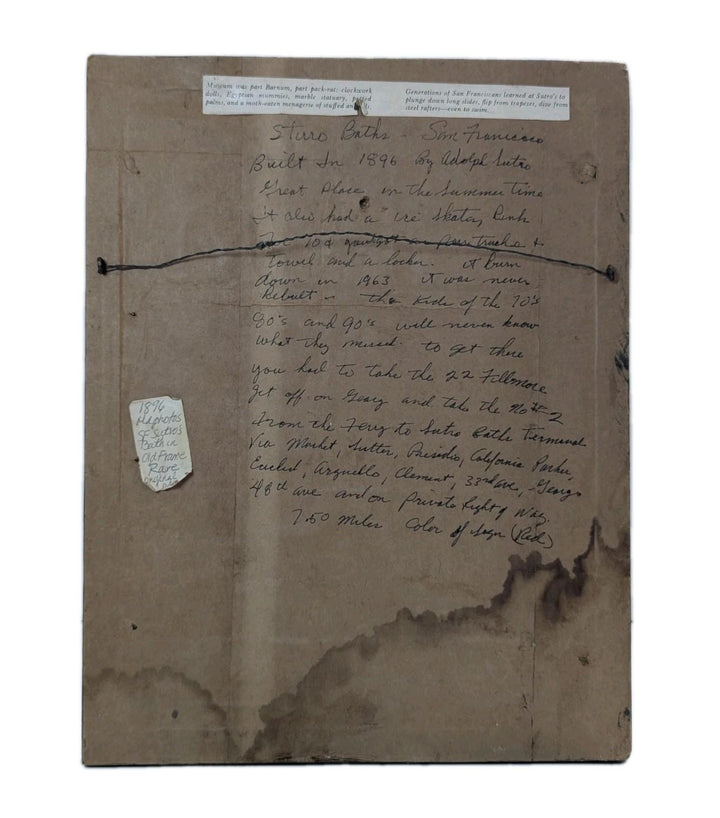 Museum was part Barnum, part pack-rat: clockwork
dolls, Egyptian mummies, marble statuary, potted
palms, and a moth-eaten menagerie of stuffed
Generations of San Franciscans learned at Sutro's to
plunge down long slides, flip from trapezes, dive from
steel rafters—even to swim...
Sturo Baths - San Francisco
Built In 1896 By Adolph Sutro
Great Place in the Summer time
It also had a ice skating Rink
For 10¢ you got a pair trucks &
towel and a locker. it burn
down in 1963 it was never
Rebuilt - the Kids of the 70's
80's and 90's will never know
what they missed. to get there
you had to take the 22 Fillmore
get off on Geary and take the No # 2
From the Ferry to Sutro Baths Terminal
Via Market, Sutter, Presidio, California Parker,
Euclid, Arguello, Clement, 33rd ave, Geary
48th ave and on Private Right of Way.
7.50 miles Color of Sign (Red)
1896
old photos
SF Sutro's
Bath in
Old Frame
Rare